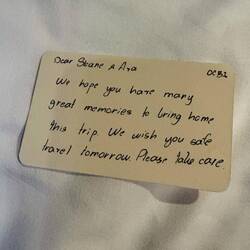 Dear Shane & Ara
OCB2
We hope you have many
great memories to bring home
this trip. We wish you safe
travel tomorrow. Please take care.